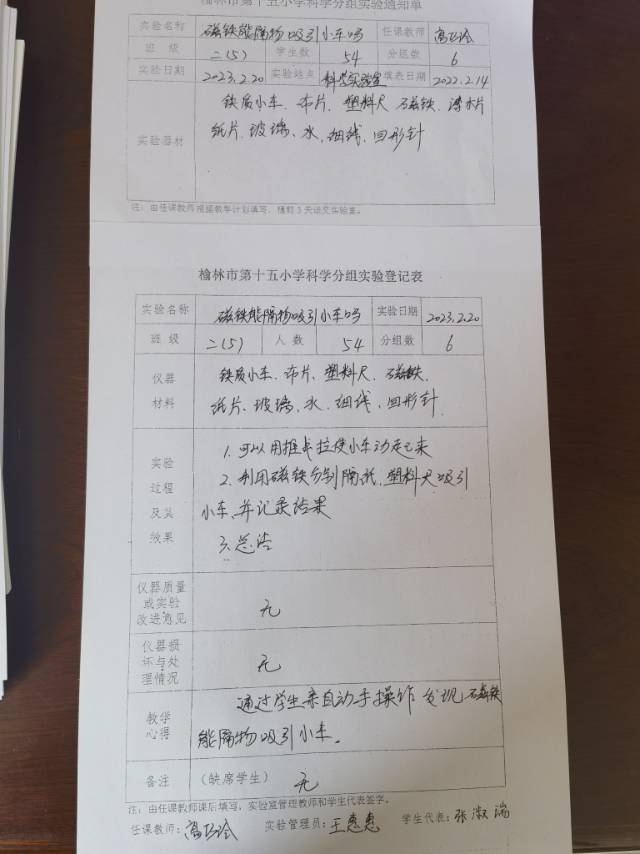 榆林市第十五小学科学分组实验通知单
实验名称 磁铁能隔物吸引小车吗 任课教师 高巧玲
班 级 二(5) 学生数 54 分组数 6
实验日期 2023.2.20 实验地点 科学实验室 填表日期 2022.2.14
实验器材
铁质小车、布片、塑料尺 磁铁、薄木片
纸片、玻璃、水、细线、回形针
注：由任课教师根据教学计划填写，提前3天送交实验室。
榆林市第十五小学科学分组实验登记表
实验名称 磁铁能隔物吸引小车吗 实验日期 2023.2.20
班 级 二(5) 人 数 54 分组数 6
仪器 铁质小车、布片、塑料尺、磁铁、
材料 纸片、玻璃、水、细线、回形针
实验
过程
及其
效果
1. 可以用推或拉使小车动起来
2. 利用磁铁分别隔纸、塑料尺吸引
小车,并记录结果
3. 总结
仪器质量
或实验
改进意见
无
仪器损
坏与处
理情况
无
教学
心得
通过学生亲自动手操作 发现 磁铁
能隔物吸引小车。
备注 (缺席学生) 无
注：由任课教师课后填写，实验室管理教师和学生代表签字。
任课教师：高巧玲 实验管理员：王惠惠 学生代表：张淑瑞